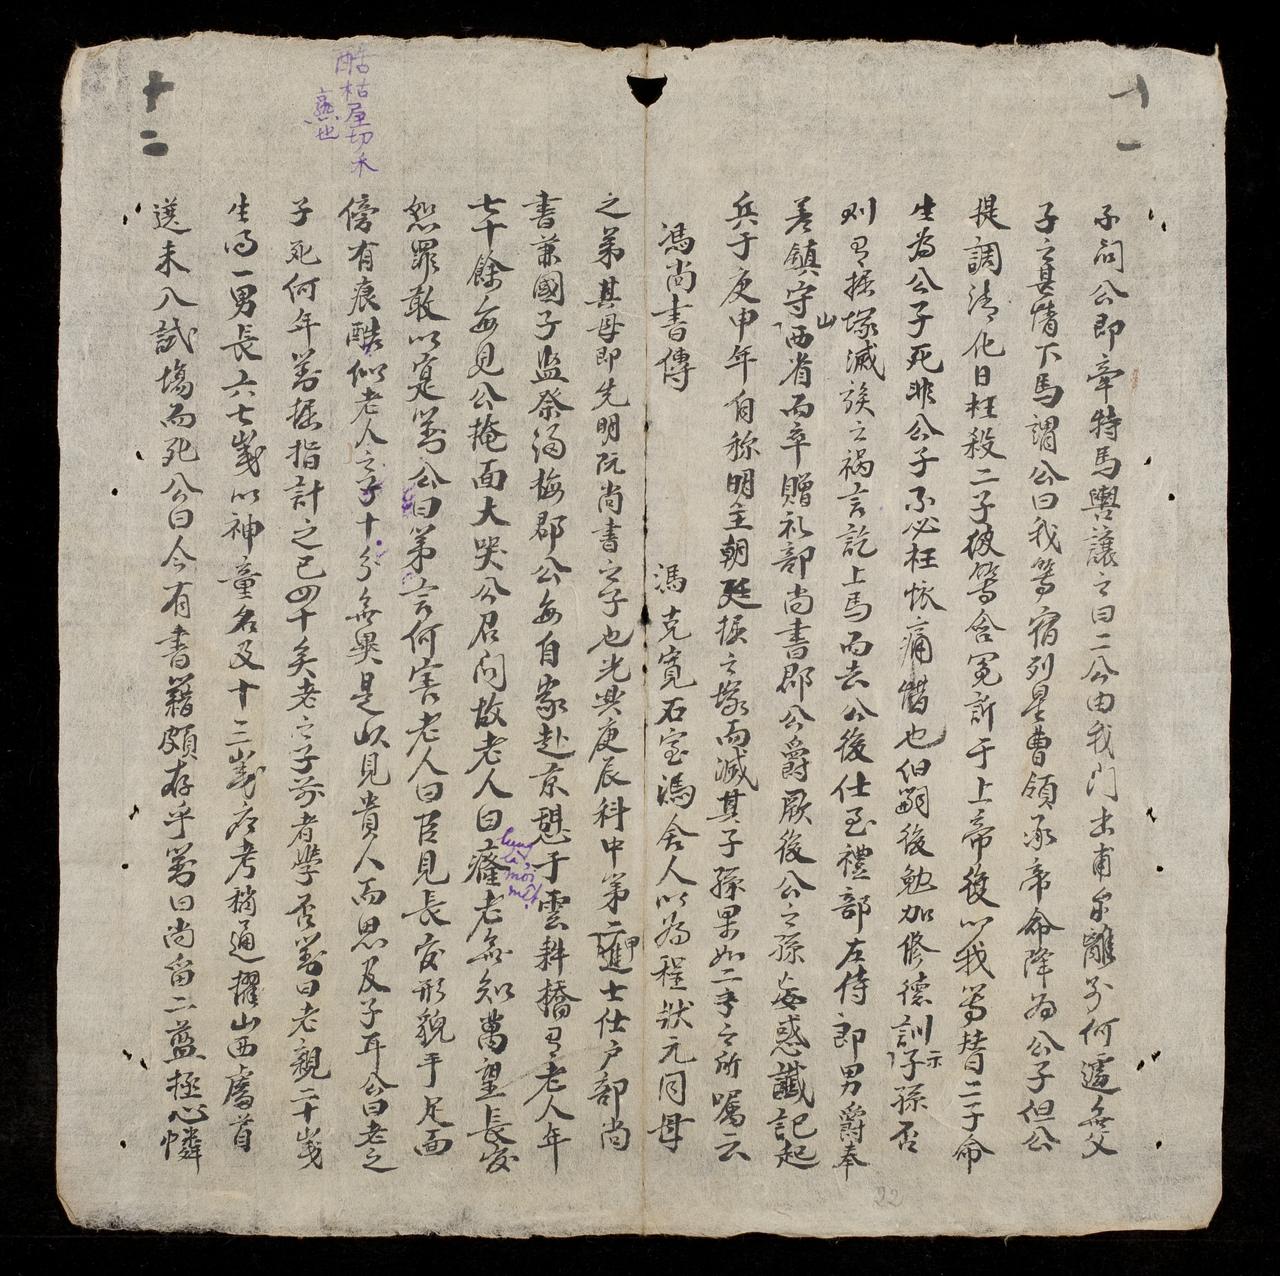 十一
不問公即牽特馬輿讓之曰二公由我門出甫尓離別何遽無父
子之甚情下馬謂公曰我等宿列星曹領承帝命降為公子但公
提調清化日枉殺二子彼等含冤訴于上帝後以我等替二子命
生為公子死非公子不必枉悵痛惜也伯嗣後勉加修德訓示子孫否
則有掘塚滅族之禍言訖上馬而去公後仕至禮部左侍郎男爵奉
差鎮守山西省而卒贈礼部尚書郡公爵厥後公之孫妄惑讖記起
兵于庚申年自称明主朝廷掘之塚而滅其子孫果如二子之所嘱云
馮尚書傳
馮克寬石室馮舍人以為程狀元同母
之弟其母即先明阮尚書之子也光興庚辰科中第二甲進士仕户部尚
書兼國子監祭酒梅郡公每自家赴京憩于雲耕橋有老人年
七十餘每見公掩面大哭公召問故老人曰癃老無知萬望長官
恕罪敢以寔對公曰第言何害老人曰臣見長官形貌手足面
傍有痕酷似老人之子十分無異是以見貴人而思及子耳公曰老之
子死何年對掘指計之已四十矣老之子前者學否對曰老親二十歲
生得一男長六七歲以神童名及十三歲応考稍通擢山西處首
選未入試塲而死公曰今有書籍頗存乎對曰尚留二藍極心憐
十二
酷枯屋切禾
熟也
lưng
là
mỏi
mệt
22